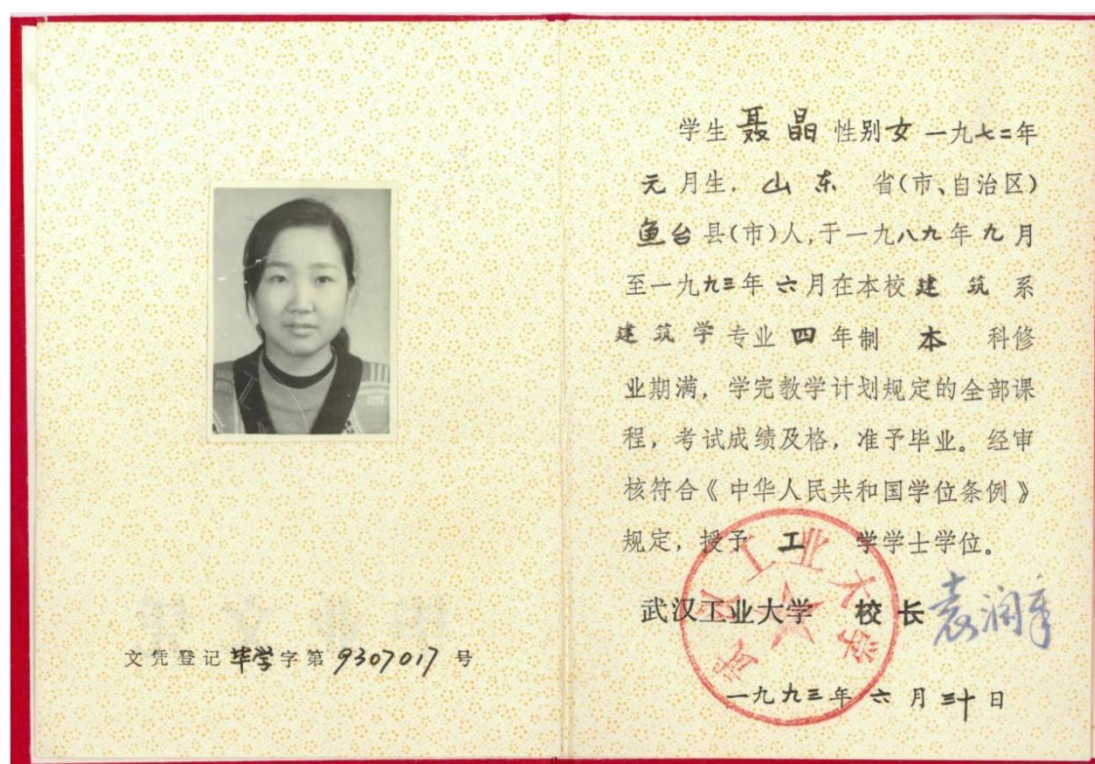 文凭登记 毕学 字第 9307017 号
学生 聂晶 性别 女 一九七二年
元 月生，山东 省(市、自治区)
鱼台 县(市)人，于一九八九年 九 月
至一九九三年 六 月在本校 建筑 系
建筑学 专业 四 年制 本 科修
业期满，学完教学计划规定的全部课
程，考试成绩及格，准予毕业。经审
核符合《中华人民共和国学位条例》
规定，授予 工 学学士学位。
武汉工业大学
武汉工业大学 校长 袁润章
一九九三年 六 月 三十 日